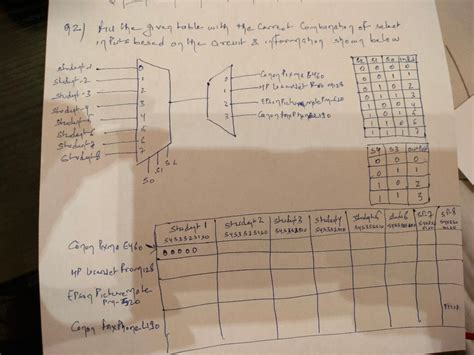 Q2) Fill the given table with the correct Combination of select
inputs based on the circuit & information shown below
Student-1
Student-2
Student-3
Student-4
Student-5
Student-6
Student-7
Student-8
0
1
2
3
4
5
6
7
S0 S1 S2
0
1
2
3
Canon Pixma E460
HP LaserJet Pro M128
Canon faxPhone L190
S2 S1 S0
0 0 0 0
0 0 1 1
0 1 0 2
0 1 1 3
1 0 0 4
1 0 1 5
1 1 0 6
1 1 1 7
S4 S3 output
0 0 0
0 1 1
1 0 2
1 1 3
Student 1
S4S3S2S1S0
Student 2
S4S3S2S1S0
Student 3
S4S3S2S1S0
Student 4
S4S3S2S1S0
Canon Pixma E460
00000
HP LaserJet Pro M128
Epson Picturemate
Canon faxPhone L190